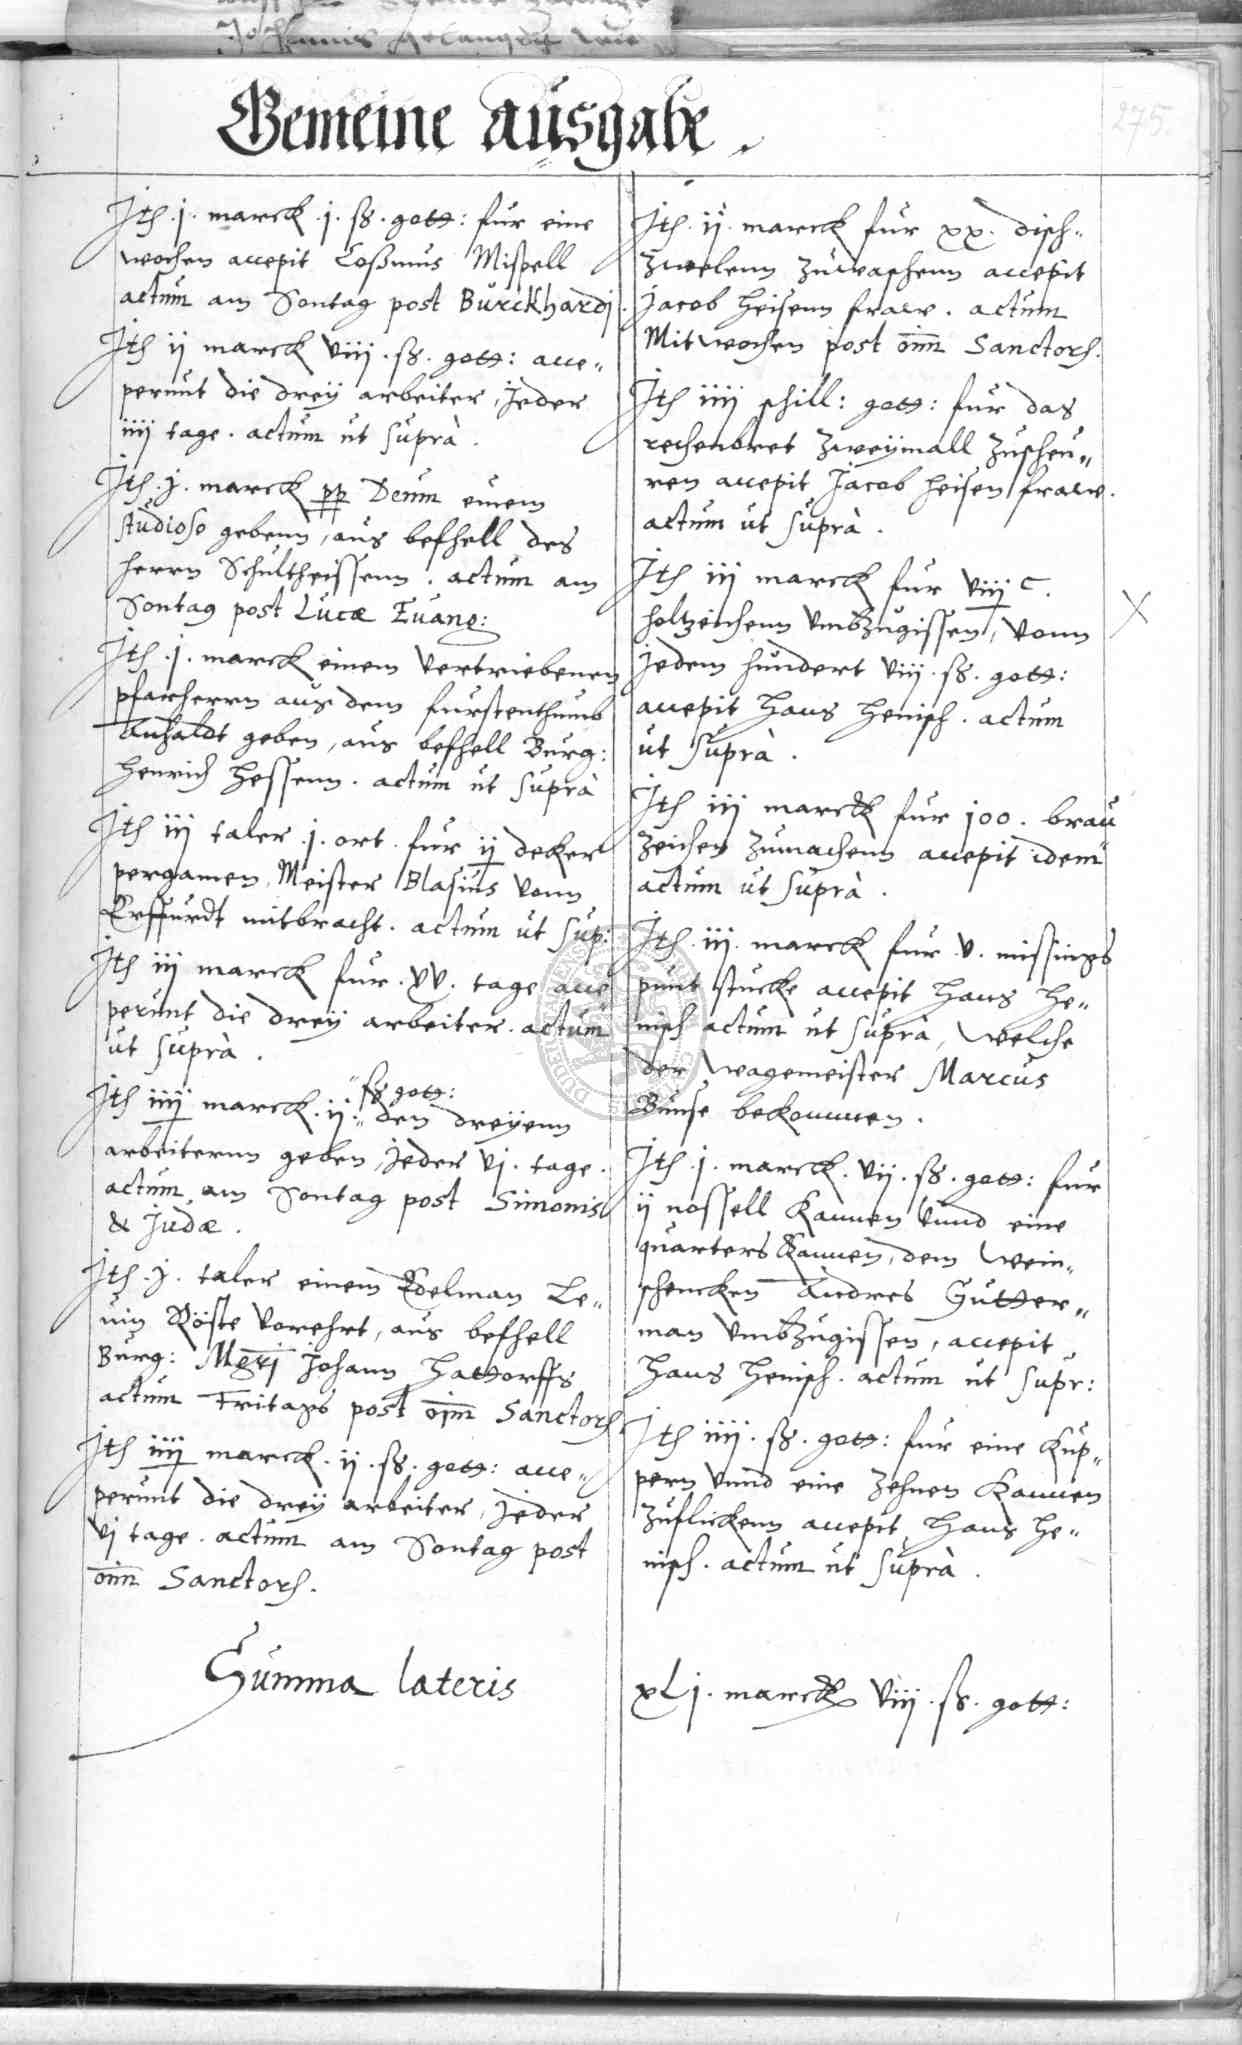 Gemeine ausgabe.
275.
Jtem .j. marck .j. ß. gott: fur eine
wochen accepit Coßmus Mispell
actum am Sontag post Burckhardj.
Jtem ij marck viij. ß. gott: acce„
perunt die dreÿ arbeiter, Jeder
iiij tage. actum ut suprà.
Jtem .j. marck pp Deum einem
studioso gebenn, aus befhell des
herrn Schultheissenn. actum am
Sontag post Lucæ Euang:
Jtem .j. marck einem vertriebenen
pfarherrn aus dem furstenthumb
Anhaldt geben, aus befhell Burg:
Henrich Hessenn. actum ut suprà
Jtem iij taler .j. ort. fur ij decker
pergamen, Meister Blasius vonn
Erffurdt mitbracht. actum ut sup:
Jtem iij marck fur .xv. tage acce„
perunt die dreÿ arbeiter. actum
ut suprà.
Jtem iiij marck .ij. ß gott: den dreÿenn
arbeiternn geben, Jeder vj. tage.
actum am Sontag post Simonis
& Judæ.
Jtem .j. taler einem Edelman Le„
uin Röste vorehrt, aus befhell
Burg: Mgrj Johann Hattorffs
actum Fritags post oim Sanctorum
Jtem iiij marck .ij. ß. gott: acce„
perunt die dreÿ arbeiter, Jeder
vj tage. actum am Sontag post
oim Sanctorum.
Jtem .ij. marck fur xx. disch„
zwelenn zuwaschenn accepit
Jacob Heisenn fraw. actum
Mitwochen post oim Sanctorum.
Jtem iiij schill: gott: fur das
rechenbret zweÿmall zuscheu„
ren accepit Jacob Heisen fraw.
actum ut suprà.
Jtem iij marck fur viij C.
holtzeichenn umbzugissen, vonn
Jedem hundert viij. ß. gott:
accepit Hans Henisch. actum
ut suprà.
Jtem iij marck fur 100. brau
zeichen zumachenn accepit idem
actum ut suprà.
Jtem .iij. marck fur .v. missings
punt stucke accepit Hans He„
nisch actum ut suprà, welche
der wagemeister Marcus
Bunse bekommen.
Jtem .j. marck. vij. ß. gott: fur
ij nossell Kannen unnd eine
quarters Kannen, dem Wein„
schencken Andres Gutter„
man umbzugissen, accepit
Hans Henisch. actum ut supr:
Jtem iiij. ß. gott: fur eine Kup„
pern unnd eine zehnen Kannen
zuflickenn accepit Hans He„
nisch. actum ut suprà.
Summa lateris
xLj. marck viij. ß. gott: